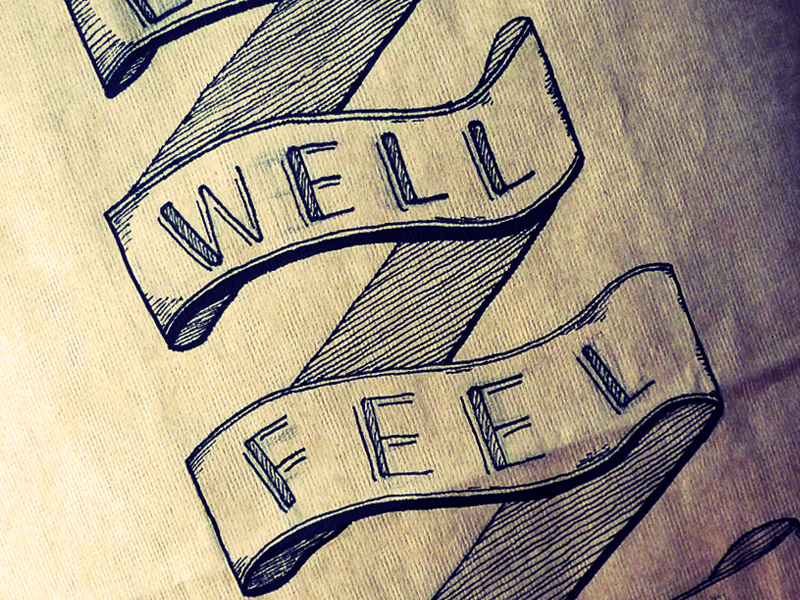 WELL
FEEL